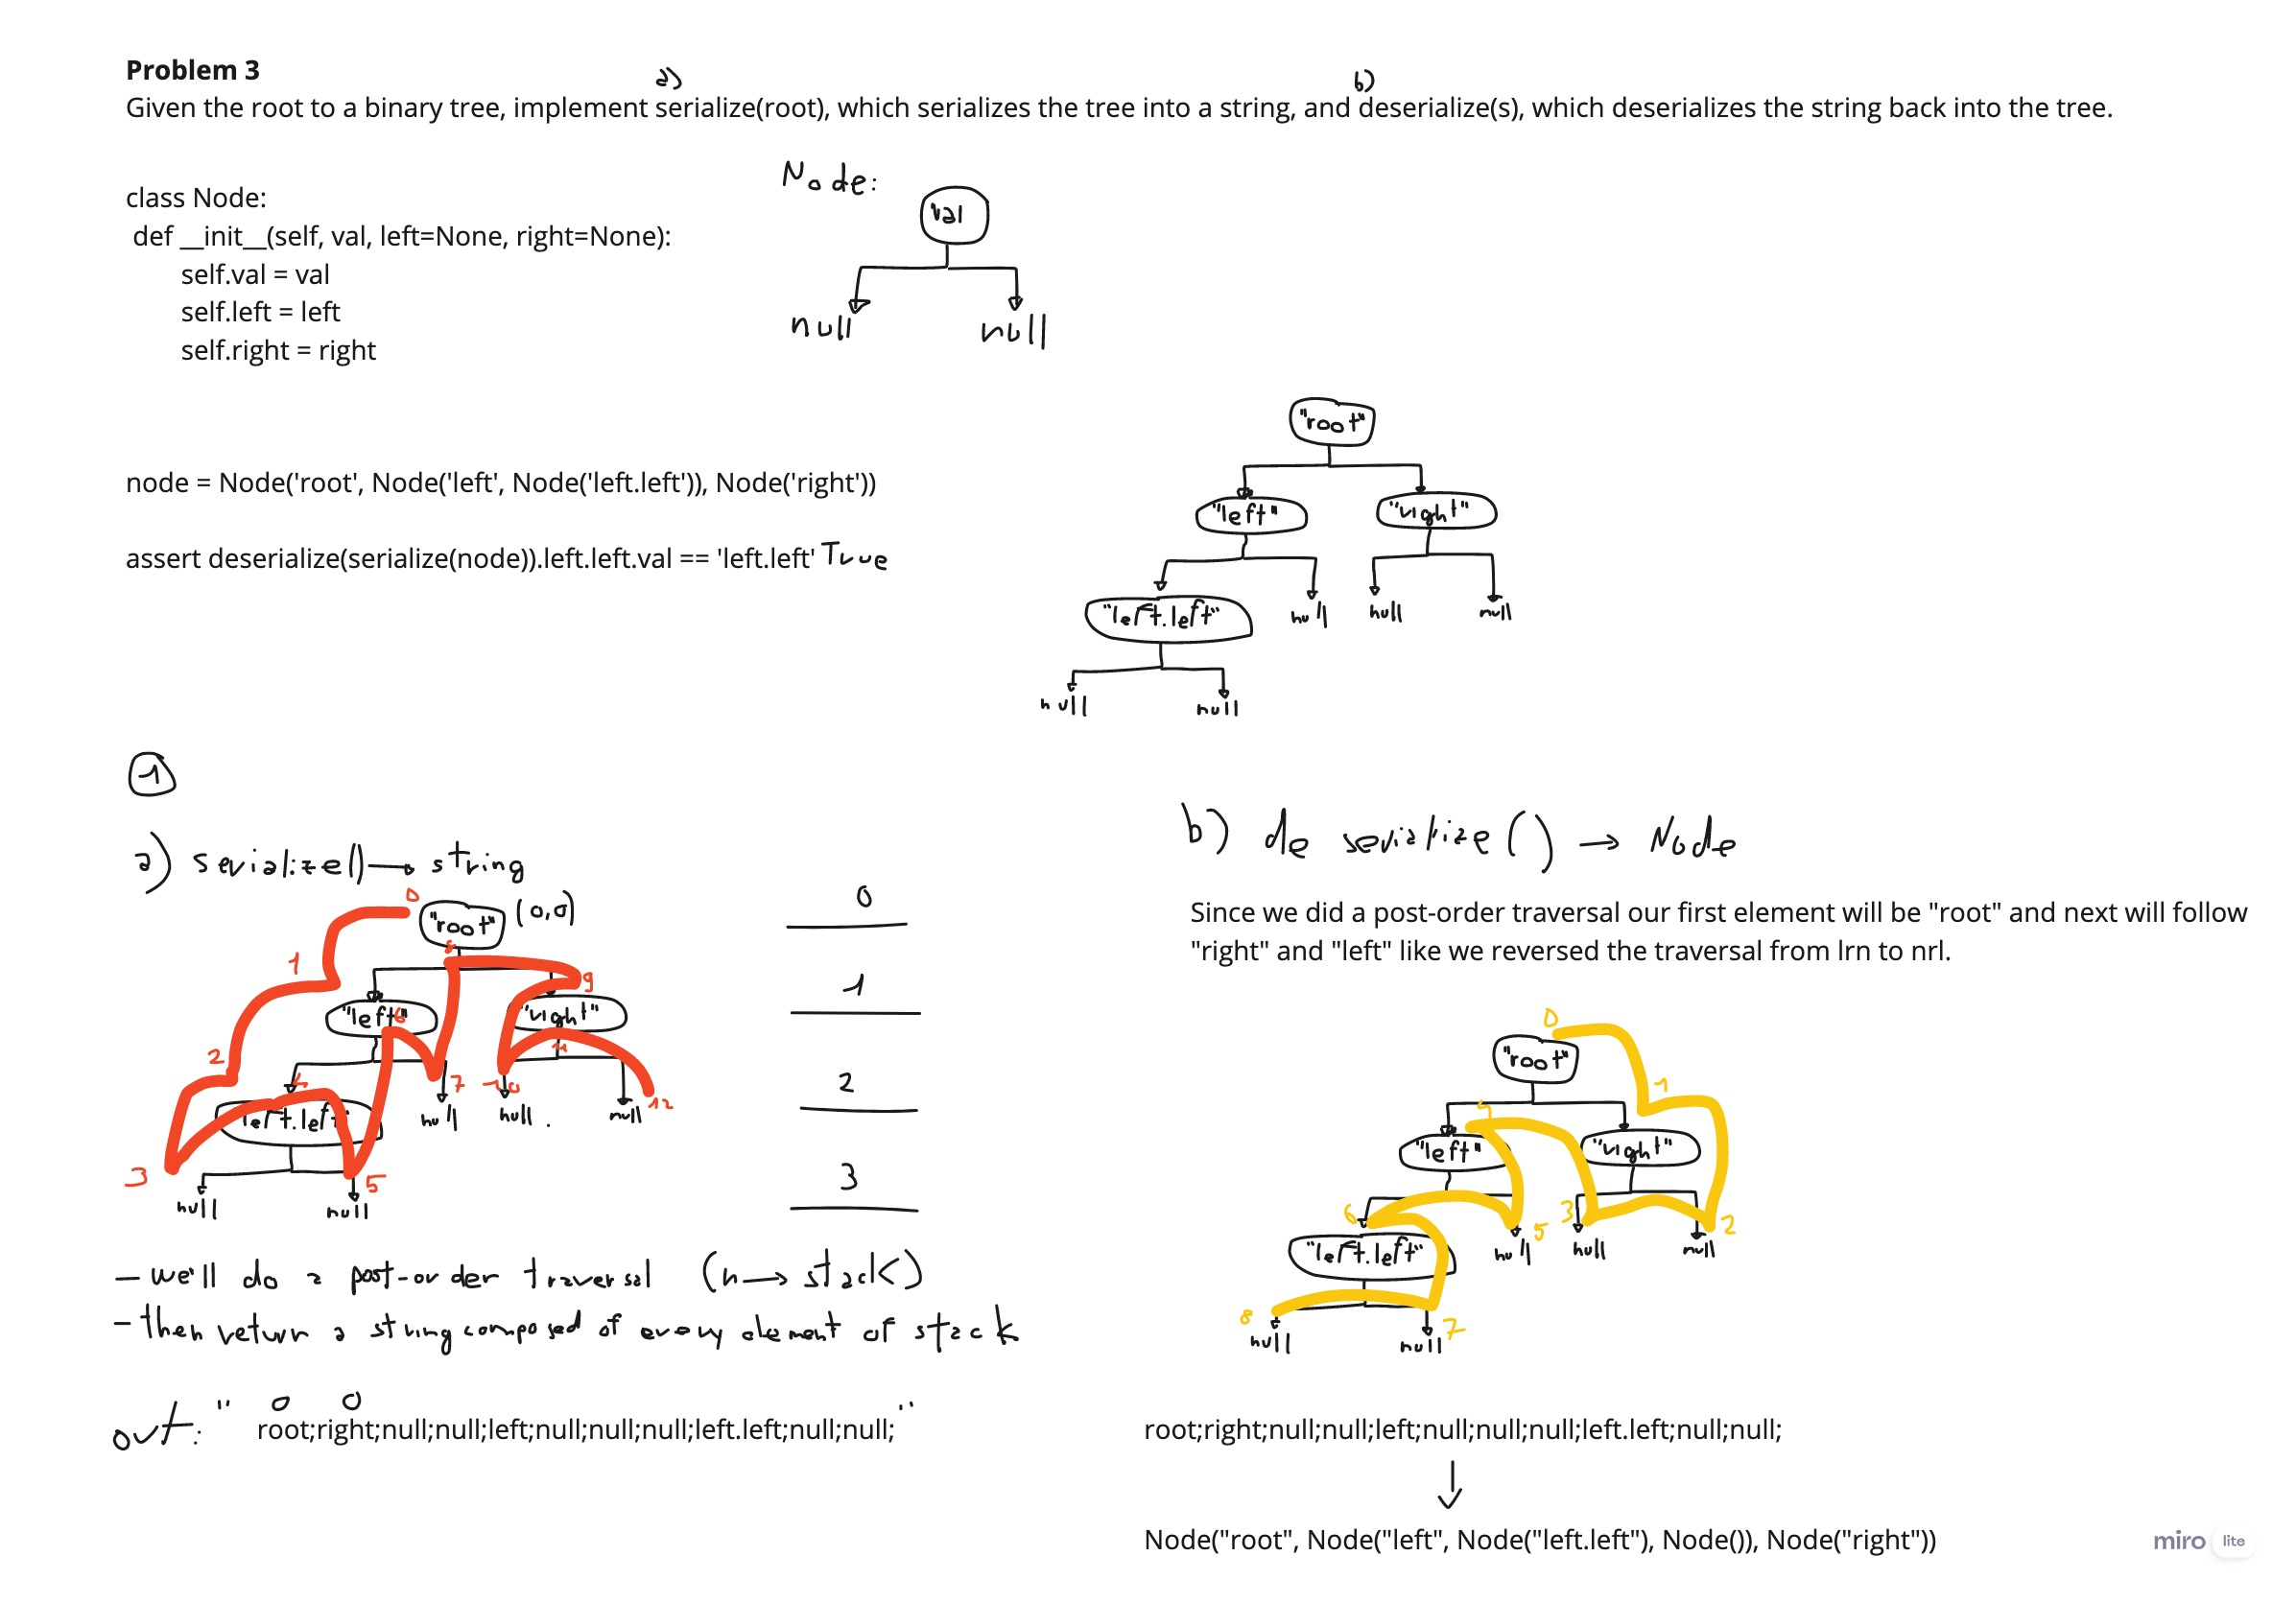 Problem 3
a) b)
Given the root to a binary tree, implement serialize(root), which serializes the tree into a string, and deserialize(s), which deserializes the string back into the tree.
class Node:
def __init__(self, val, left=None, right=None):
self.val = val
self.left = left
self.right = right
Node:
val
null null
node = Node('root', Node('left', Node('left.left')), Node('right'))
assert deserialize(serialize(node)).left.left.val == 'left.left' True
"root"
"left" "right"
"left.left" null null null
null null
1
a) serialize() → string
0
"root" (0,0)
8
1 9
"left" 6 "right"
2 4 11
7 10 12
"left.left" null null null
3 5
null null
0
1
2
3
- we'll do a post-order traversal (n → stack)
- then return a string composed of every element of stack
out: " 0 0
root;right;null;null;left;null;null;null;left.left;null;null; "
b) deserialize() → Node
Since we did a post-order traversal our first element will be "root" and next will follow
"right" and "left" like we reversed the traversal from lrn to nrl.
0
"root"
1
4
"left" "right"
6 5 3 2
"left.left" null null null
8 7
null null
root;right;null;null;left;null;null;null;left.left;null;null;
↓
Node("root", Node("left", Node("left.left"), Node()), Node("right"))
miro lite